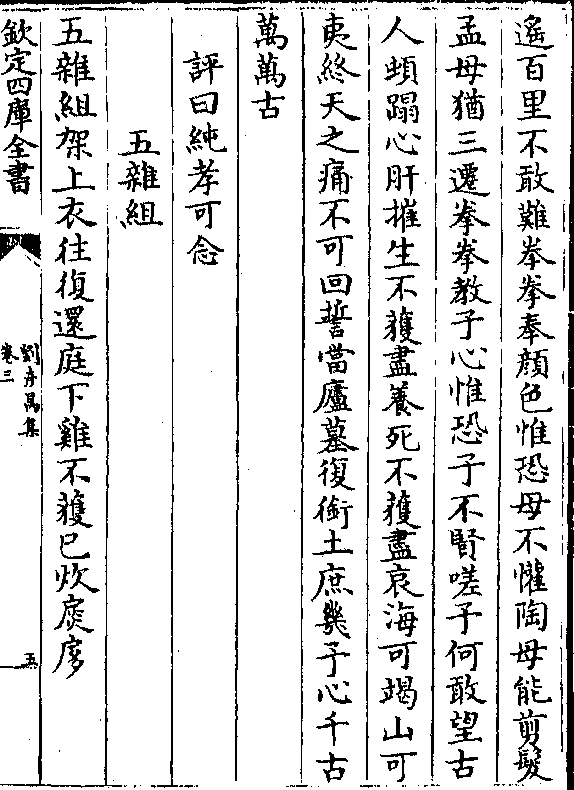 遙百里不敢難拳拳奉顔色惟恐母不懽陶母能剪髮
孟母猶三遷拳拳教子心惟恐子不賢嗟子何敢望古
人蝢蹋心肝摧生不獲盡養死不獲盡哀海可竭山可
夷終天之痛不可回誓當廬墓復銜土庶幾子心千古
萬萬古
評曰純孝可念
五雜組
五雜組架上衣往復還庭下雞不獲已炊扊扅
欽定四庫全書
劉彦昺集
卷三
五